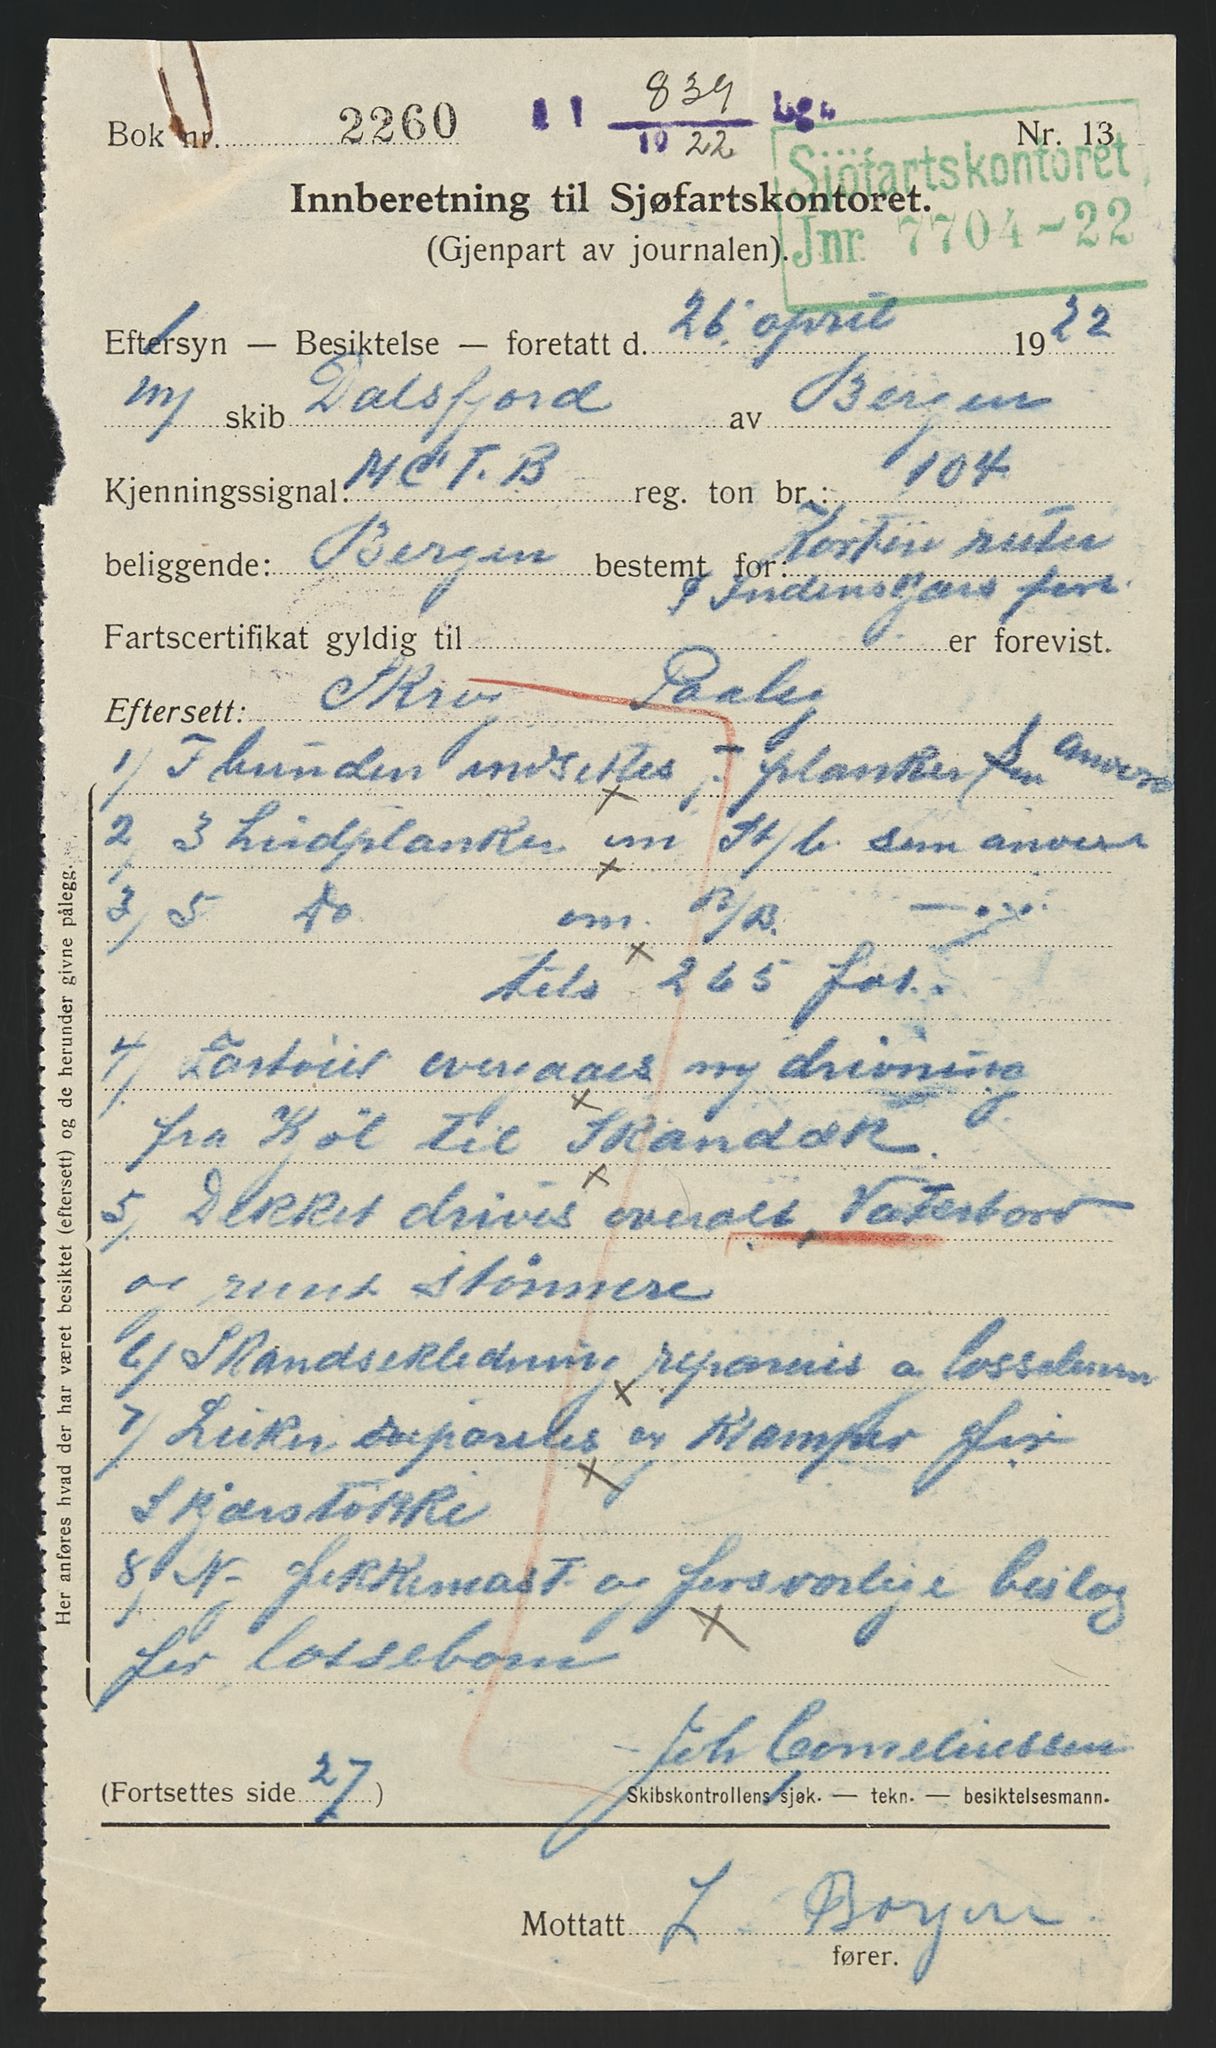 839
Bok nr. 2260 11 10 22 Nr. 13
Sjöfartskontoret
Jnr 7704-22
Innberetning til Sjøfartskontoret.
(Gjenpart av journalen).
Eftersyn — Besiktelse — foretatt d. 26. april 1922
m/ skib Dalsfjord av Bergen
Kjenningssignal: M C T. B reg. ton br.: 104
beliggende: Bergen bestemt for:
Fartscertifikat gyldig til er forevist.
Eftersett: Skrog
1/ I bunden indsettes 7 planker
2/ 3 hudplanker om St/b. som anvist
3/ 5 Do om B/B. — " —
265 fot.
4/ Fartöiet overgaaes ny drivning
fra Kjöl til Skandæk.
5/ Dekket drives overalt, Vaterbord
og rundt stönnere
6/ Skandsekledning repareres
7/ Luker repareres og Klamper for
Skjærstokke
8/ Ny fokkemast og forsvarlige beslag
for lossebom
Her anføres hvad der har været besiktet (eftersett) og de herunder givne pålegg.
Joh Corneliussen
(Fortsettes side 27) Skibskontrollens sjøk. — tekn. — besiktelsesmann.
Mottatt L. Borgen
fører.